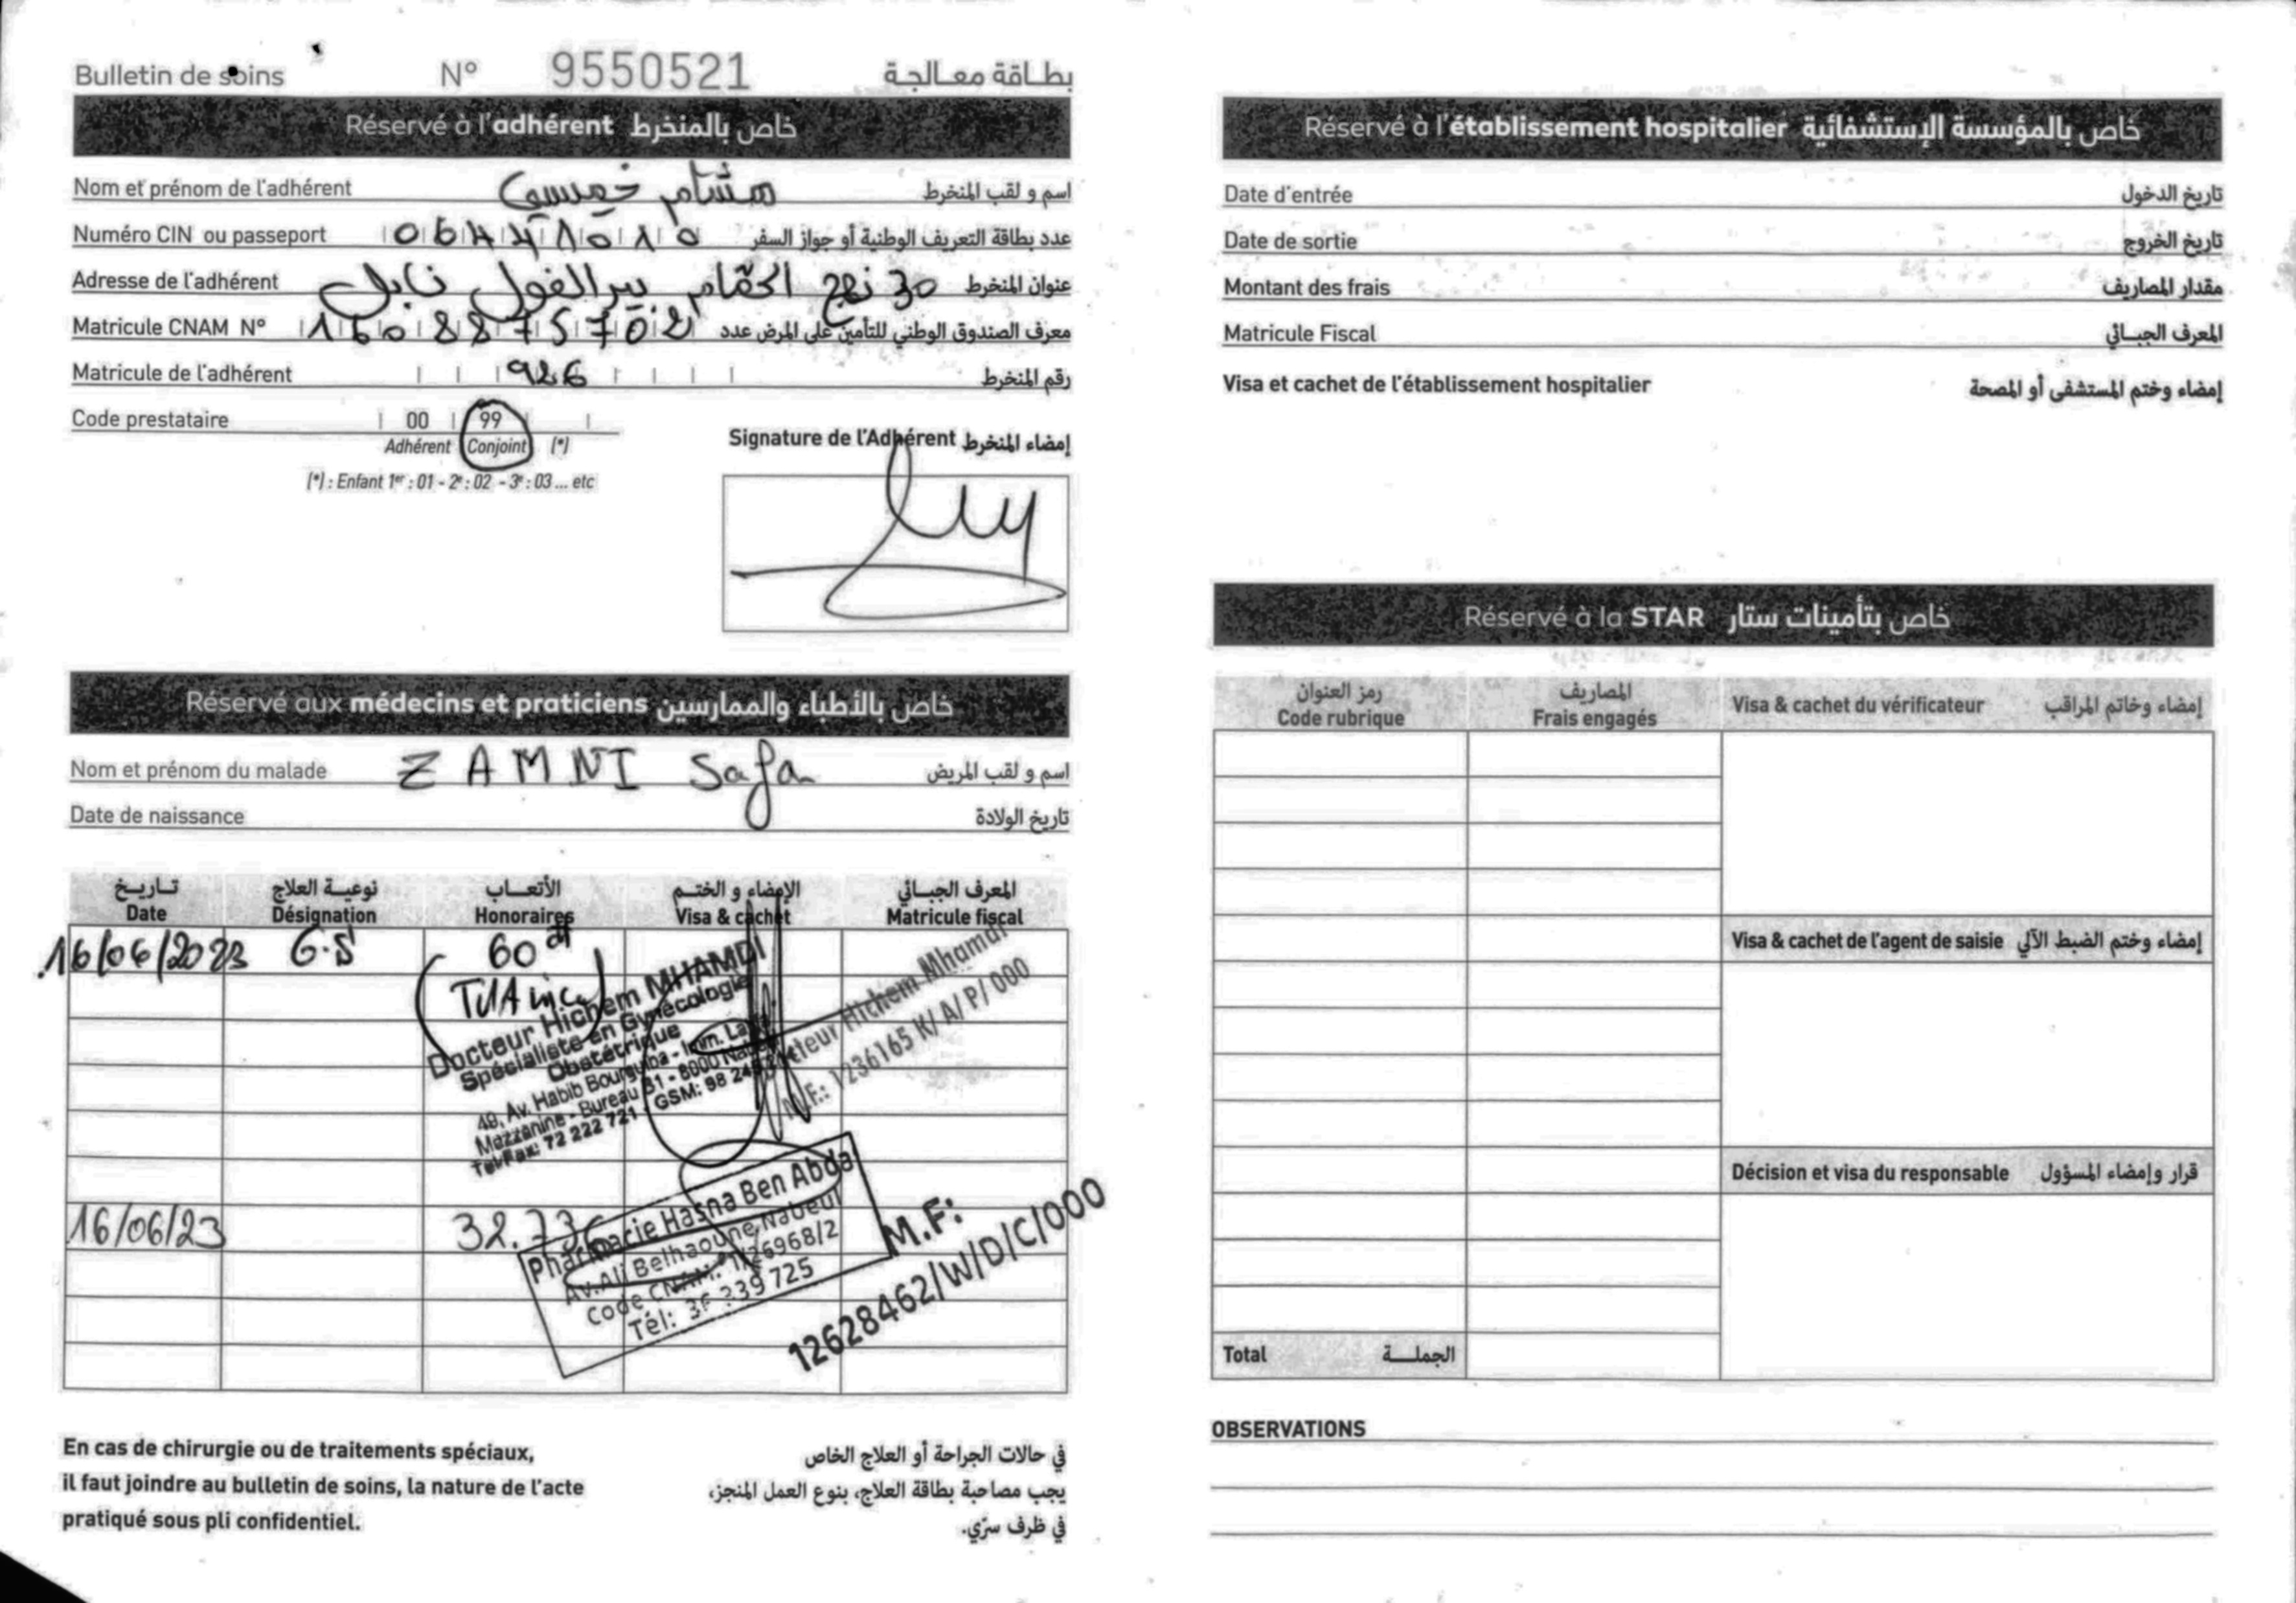 Bulletin de soins N° 9550521 بطاقة معالجة
Réservé à l'adhérent خاص بالمنخرط
Nom et prénom de l'adhérent هشام خميسي اسم و لقب المنخرط
Numéro CIN ou passeport عدد بطاقة التعريف الوطنية أو جواز السفر
Adresse de l'adhérent 30 نهج الحمّام بير الغول نابل عنوان المنخرط
Matricule CNAM N° معرف الصندوق الوطني للتأمين على المرض عدد
Matricule de l'adhérent 926 رقم المنخرط
Code prestataire 00 99
Adhérent Conjoint (*)
(*) : Enfant 1er : 01 - 2e : 02 - 3e : 03 ... etc
Signature de l'Adhérent إمضاء المنخرط
Réservé aux médecins et praticiens خاص بالأطباء والممارسين
Nom et prénom du malade ZAMNI Safa اسم و لقب المريض
Date de naissance تاريخ الولادة
تاريخ نوعية العلاج الأتعاب الإمضاء و الختم المعرف الجبائي
Date Désignation Honoraires Visa & cachet Matricule fiscal
16/06/2023 G.S 60 dt
Docteur Hichem MHAMDI
Spécialiste en Gynécologie
Obstétrique
49, Av. Habib Bourguiba - Imm.
Mezzanine - Bureau B1 - 8000
Tel/Fax: 72 222 721 - GSM: 98
Docteur Hichem Mhamdi
M.F.: 1236165 K/ A/ P/ 000
16/06/23 32.736
Pharmacie Hasna Ben Abda
Av. Ali Belhaoune, Nabeul
Code CNAM: 1/26968/2
Tél: 36 239 725
M.F:
12628462/W/D/C/000
En cas de chirurgie ou de traitements spéciaux,
il faut joindre au bulletin de soins, la nature de l'acte
pratiqué sous pli confidentiel.
في حالات الجراحة أو العلاج الخاص
يجب مصاحبة بطاقة العلاج، بنوع العمل المنجز،
في ظرف سرّي.
Réservé à l'établissement hospitalier خاص بالمؤسسة الإستشفائية
Date d'entrée تاريخ الدخول
Date de sortie تاريخ الخروج
Montant des frais مقدار المصاريف
Matricule Fiscal المعرف الجبائي
Visa et cachet de l'établissement hospitalier إمضاء وختم المستشفى أو المصحة
Réservé à la STAR خاص بتأمينات ستار
رمز العنوان المصاريف
Code rubrique Frais engagés Visa & cachet du vérificateur إمضاء وخاتم المراقب
Visa & cachet de l'agent de saisie إمضاء وختم الضبط الآلي
Décision et visa du responsable قرار وإمضاء المسؤول
Total الجملة
OBSERVATIONS